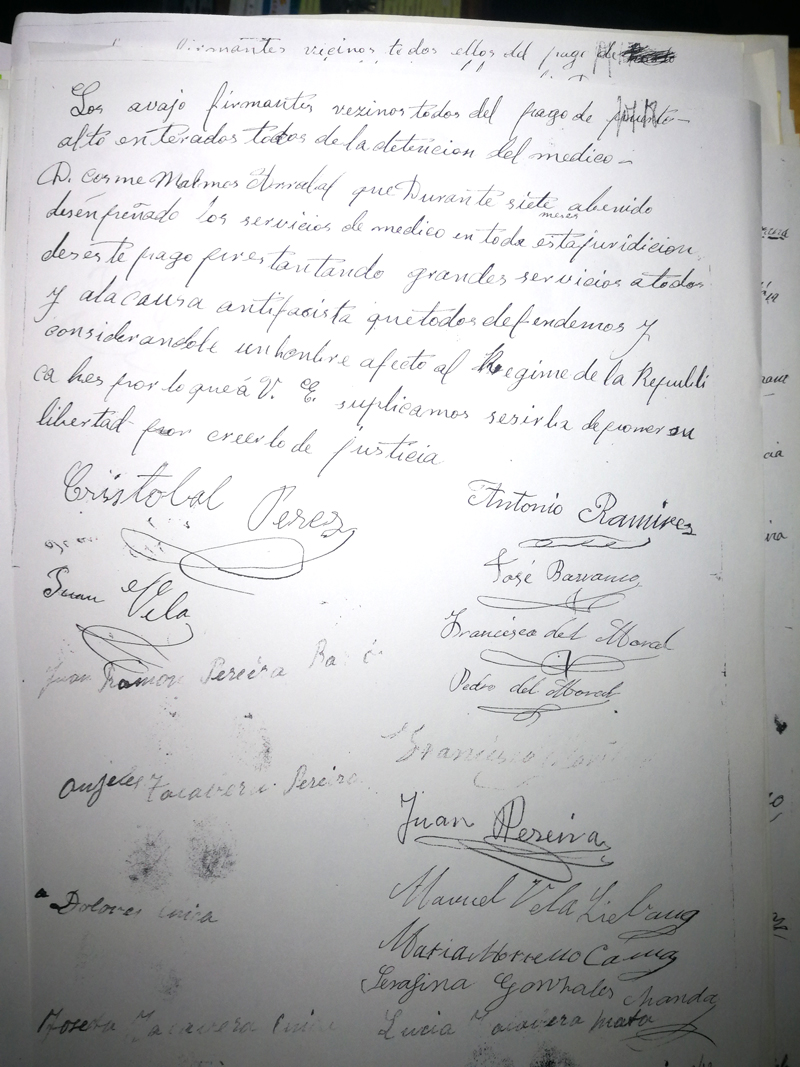 Firmantes vicinos todos ellos del pago de
Los avajo firmantes vezinos todos del pago de puente
alto enterados todos de la detencion del medico
D. cosme Matmos Arrabal que Durante siete abenido
meses
desenpeñado los servicios de medico en toda esta juridicion
des este pago prestantando grandes servicios a todos
y a la causa antifacista que todos defendemos y
considerandole un honbre afecto al Regime de la Republi
ca hes por lo que á V. E. suplicamos se sirba deponer su
libertad por creerlo de justicia
Cristobal Perez
Antonio Ramirez
José Barranco
Juan Vela
Francisco del Moral
Juan Ramon Pereira
Pedro del Moral
Francisco
Angeles Talavera Pereira
Juan Pereira
Manuel Vela Liebana
Dolores
Maria Moreno
Serafina Gonzales Aranda
Josefa Talavera
Lucia Talavera Mata